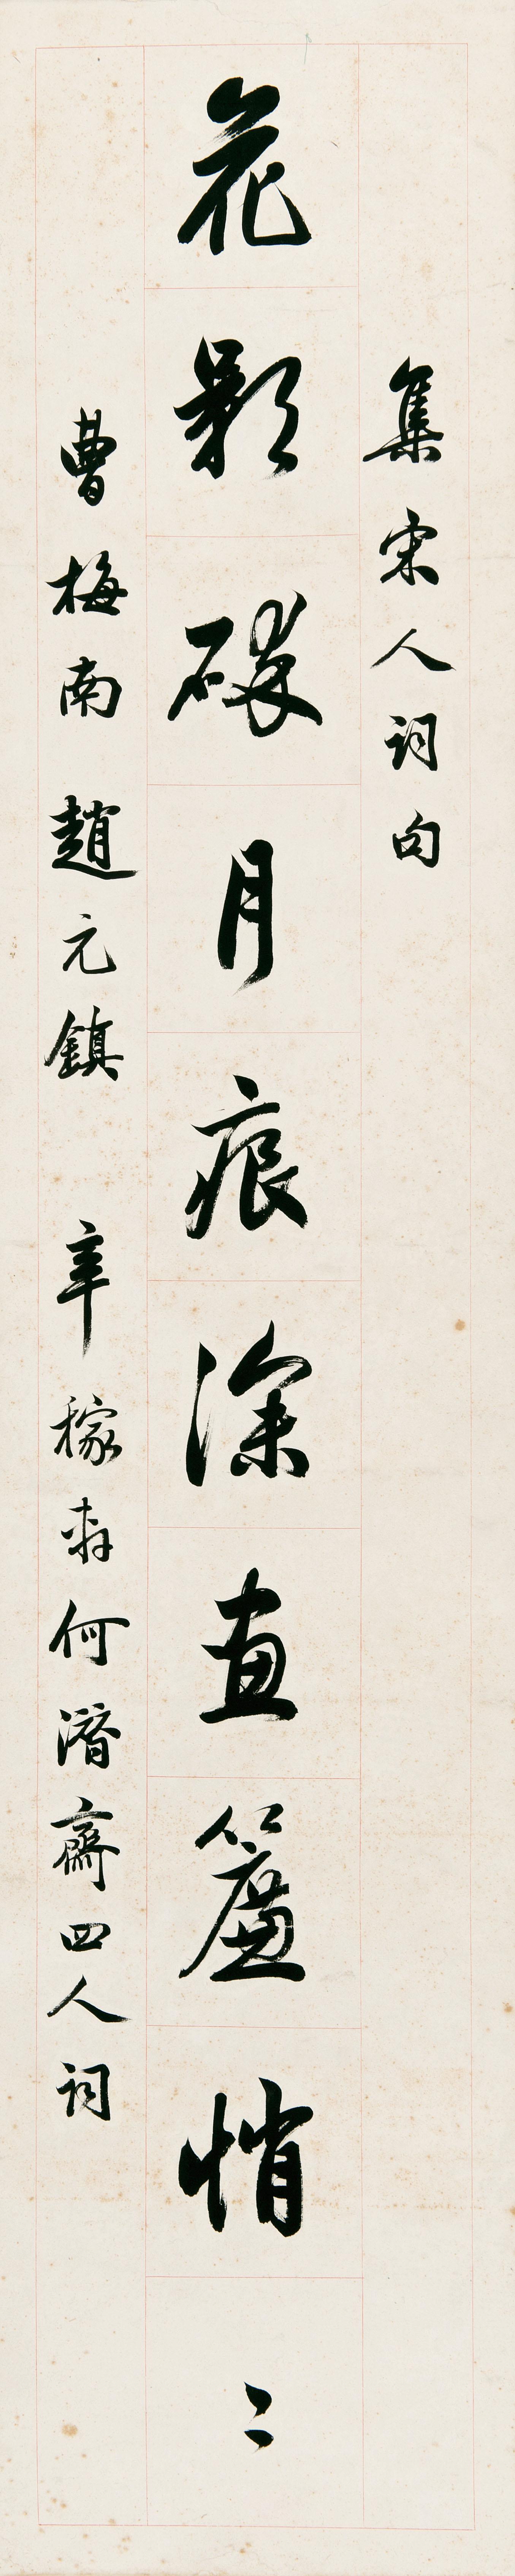 集宋人詞句
花影碎月痕深畫簾悄〻
曹梅南 趙元鎮 辛稼軒何潛齋四人詞